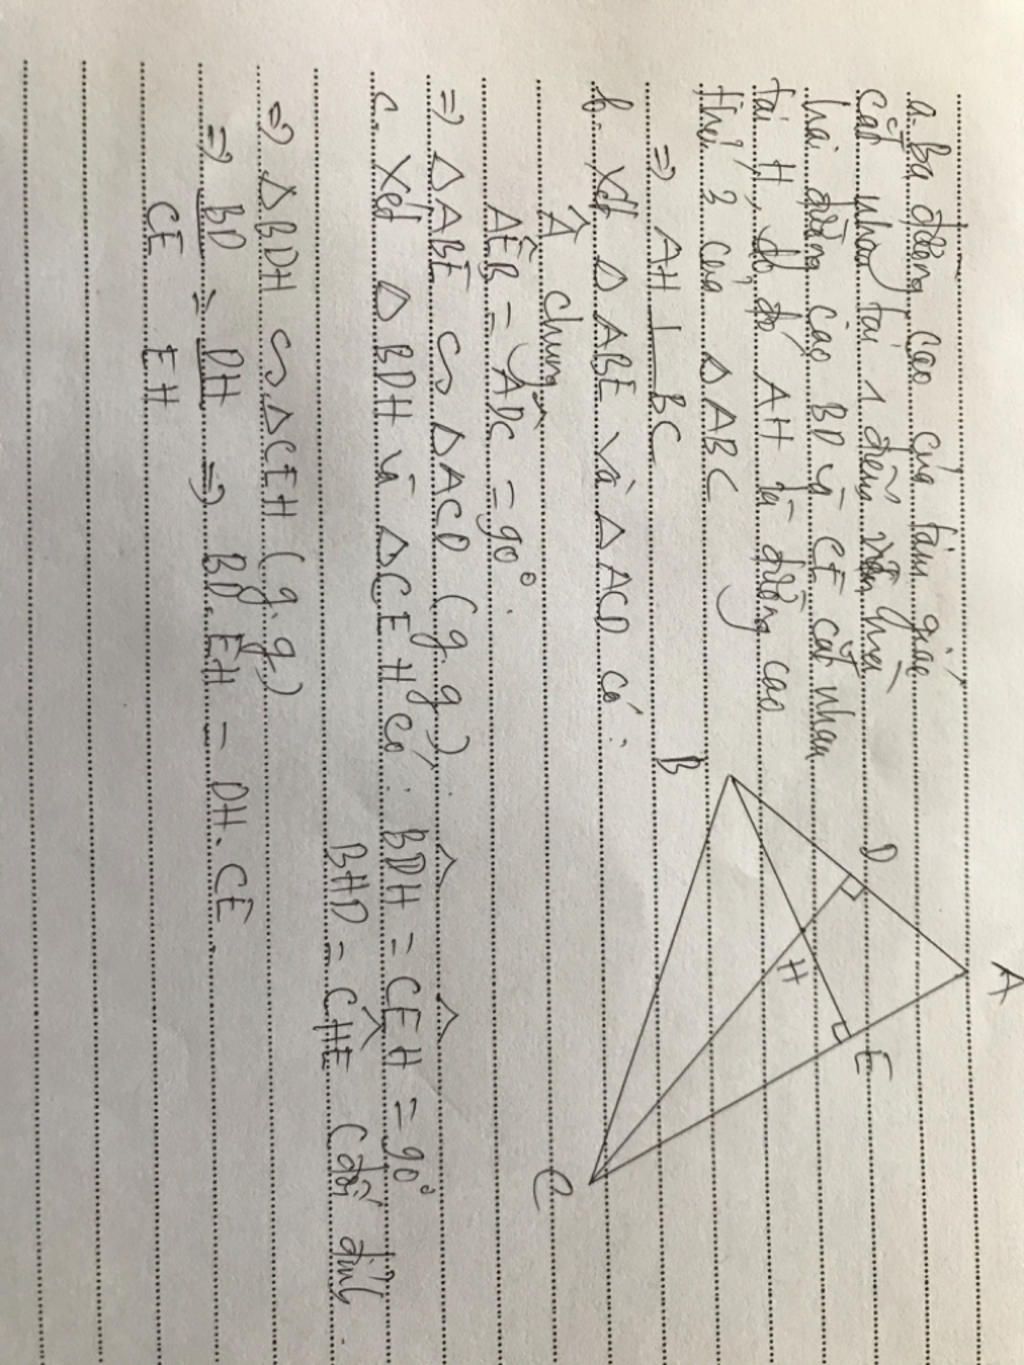 a. Ba đường cao của tam giác
cắt nhau tại 1 điểm mà
hai đường cao BD và CE cắt nhau
tại H, do đó AH là đường cao
thứ 3 của △ABC
=> AH ⊥ BC
b. Xét △ABE và △ACD có:
Â chung
AÊB = AD̂C = 90°.
=> △ABE ∽ △ACD (g.g).
c. Xét △BDH và △CEH có: BD̂H = CÊH = 90°
BHD = CĤE (đối đỉnh.
=> △BDH ∽ △CEH (g.g)
=> BD/CE = DH/EH => BD.EH = DH.CE.
A
D
E
H
B
C